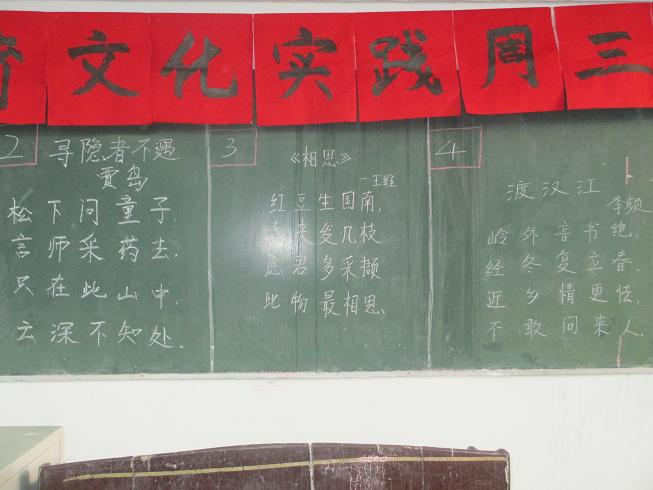 齐文化实践周三
2
寻隐者不遇
贾岛
松下问童子,
言师采药去.
只在此山中,
云深不知处.
3
《相思》
—王维
红豆生国南,
来发几枝
愿君多采撷
此物最相思.
4
渡汉江
李频
岭外音书绝,
经冬复立春.
近乡情更怯,
不敢问来人.